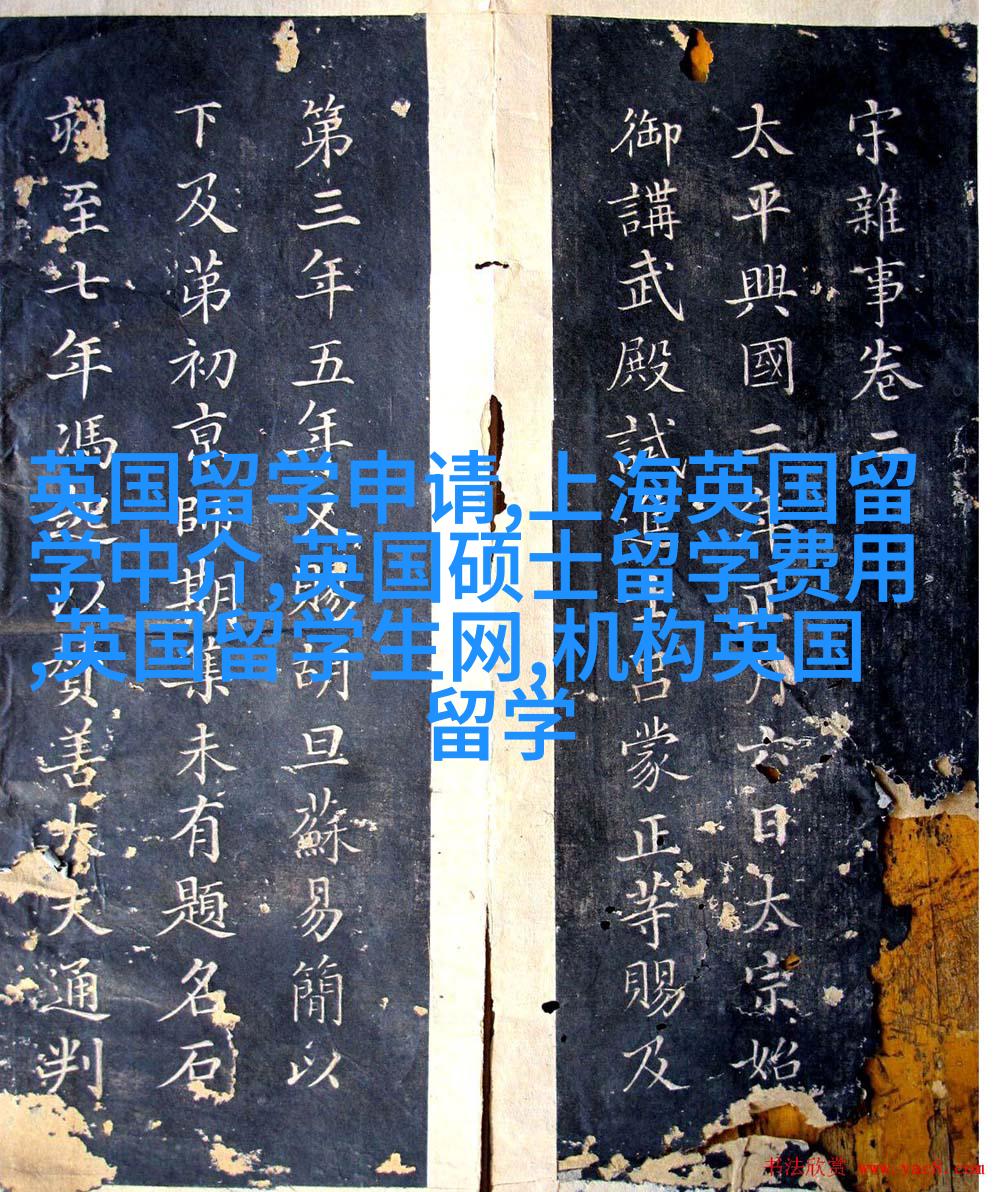 宋雜事卷二
太平興國二年正月六日太宗始
御講武殿試進士呂蒙正等賜及
第三年五年又賜胡旦蘇易簡以
下及苐初京師期集未有題名石
至七年馮以善大夫通判
英国留学申请,上海英国留
学中介,英国硕士留学费用
,英国留学生网,机构英国
留学
书法欣赏 www.yac8.com